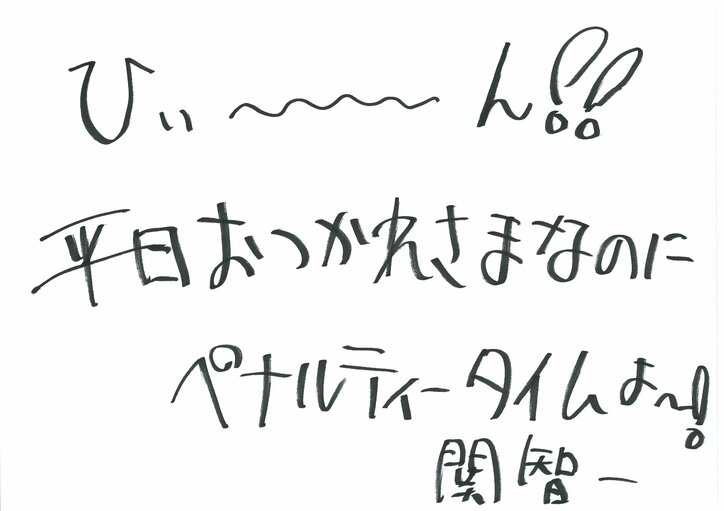 ひぃ〜〜〜ん!!
平日おつかれさまなのに
ペナルティータイムよ〜!
関智一